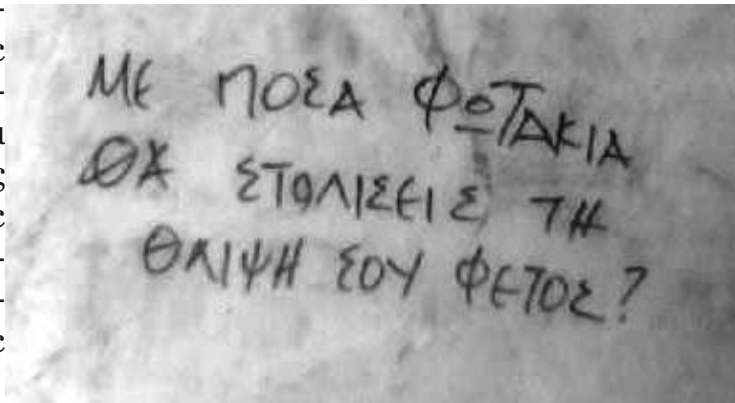 ΜΕ ΠΟΣΑ ΦΩΤΑΚΙΑ
ΘΑ ΣΤΟΛΙΣΕΙΣ ΤΗ
ΘΛΙΨΗ ΣΟΥ ΦΕΤΟΣ?